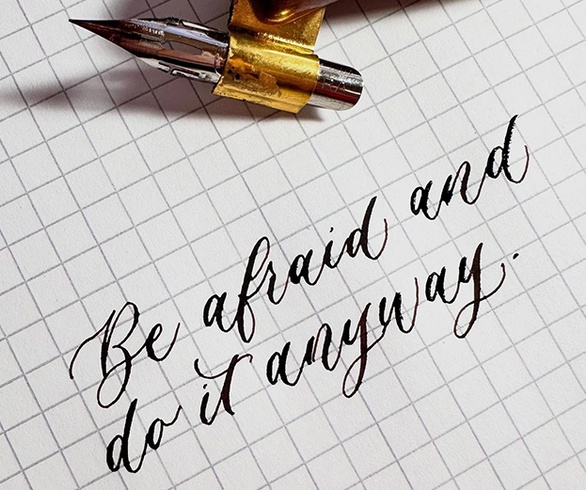 Be afraid and
do it anyway.